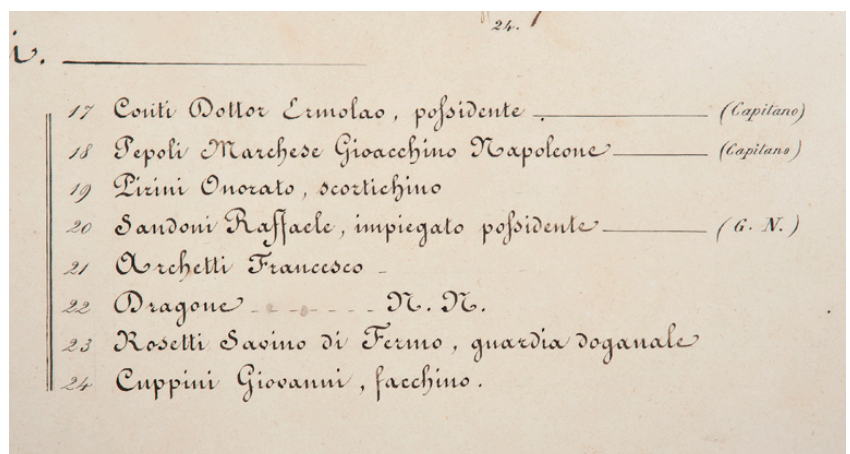 24.
i.
17 Conti Dottor Ermolao, possidente (Capitano)
18 Pepoli Marchese Gioacchino Napoleone (Capitano)
19 Pirini Onorato, scortichino
20 Sandoni Raffaele, impiegato possidente (G. N.)
21 Archetti Francesco
22 Dragone N. N.
23 Rosetti Savino di Fermo, guardia doganale
24 Cuppini Giovanni, facchino.